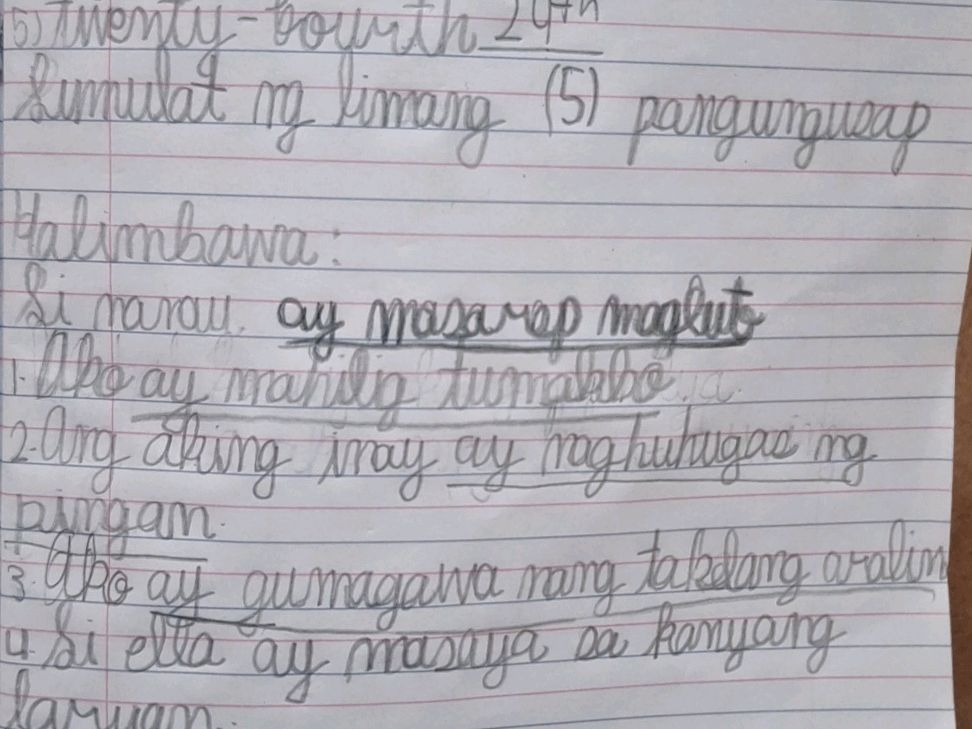 5) Twenty-fourth 24th
Sumulat ng limang (5) pangungusap
Halimbawa:
Si nanay ay masarap magluto
1. Ako ay mahilig tumakbo.
2. Ang aking inay ay naghuhugas ng
pingan.
3. Ako ay gumagawa nang takdang aralin
4. Si ella ay masaya sa kanyang
laruan.